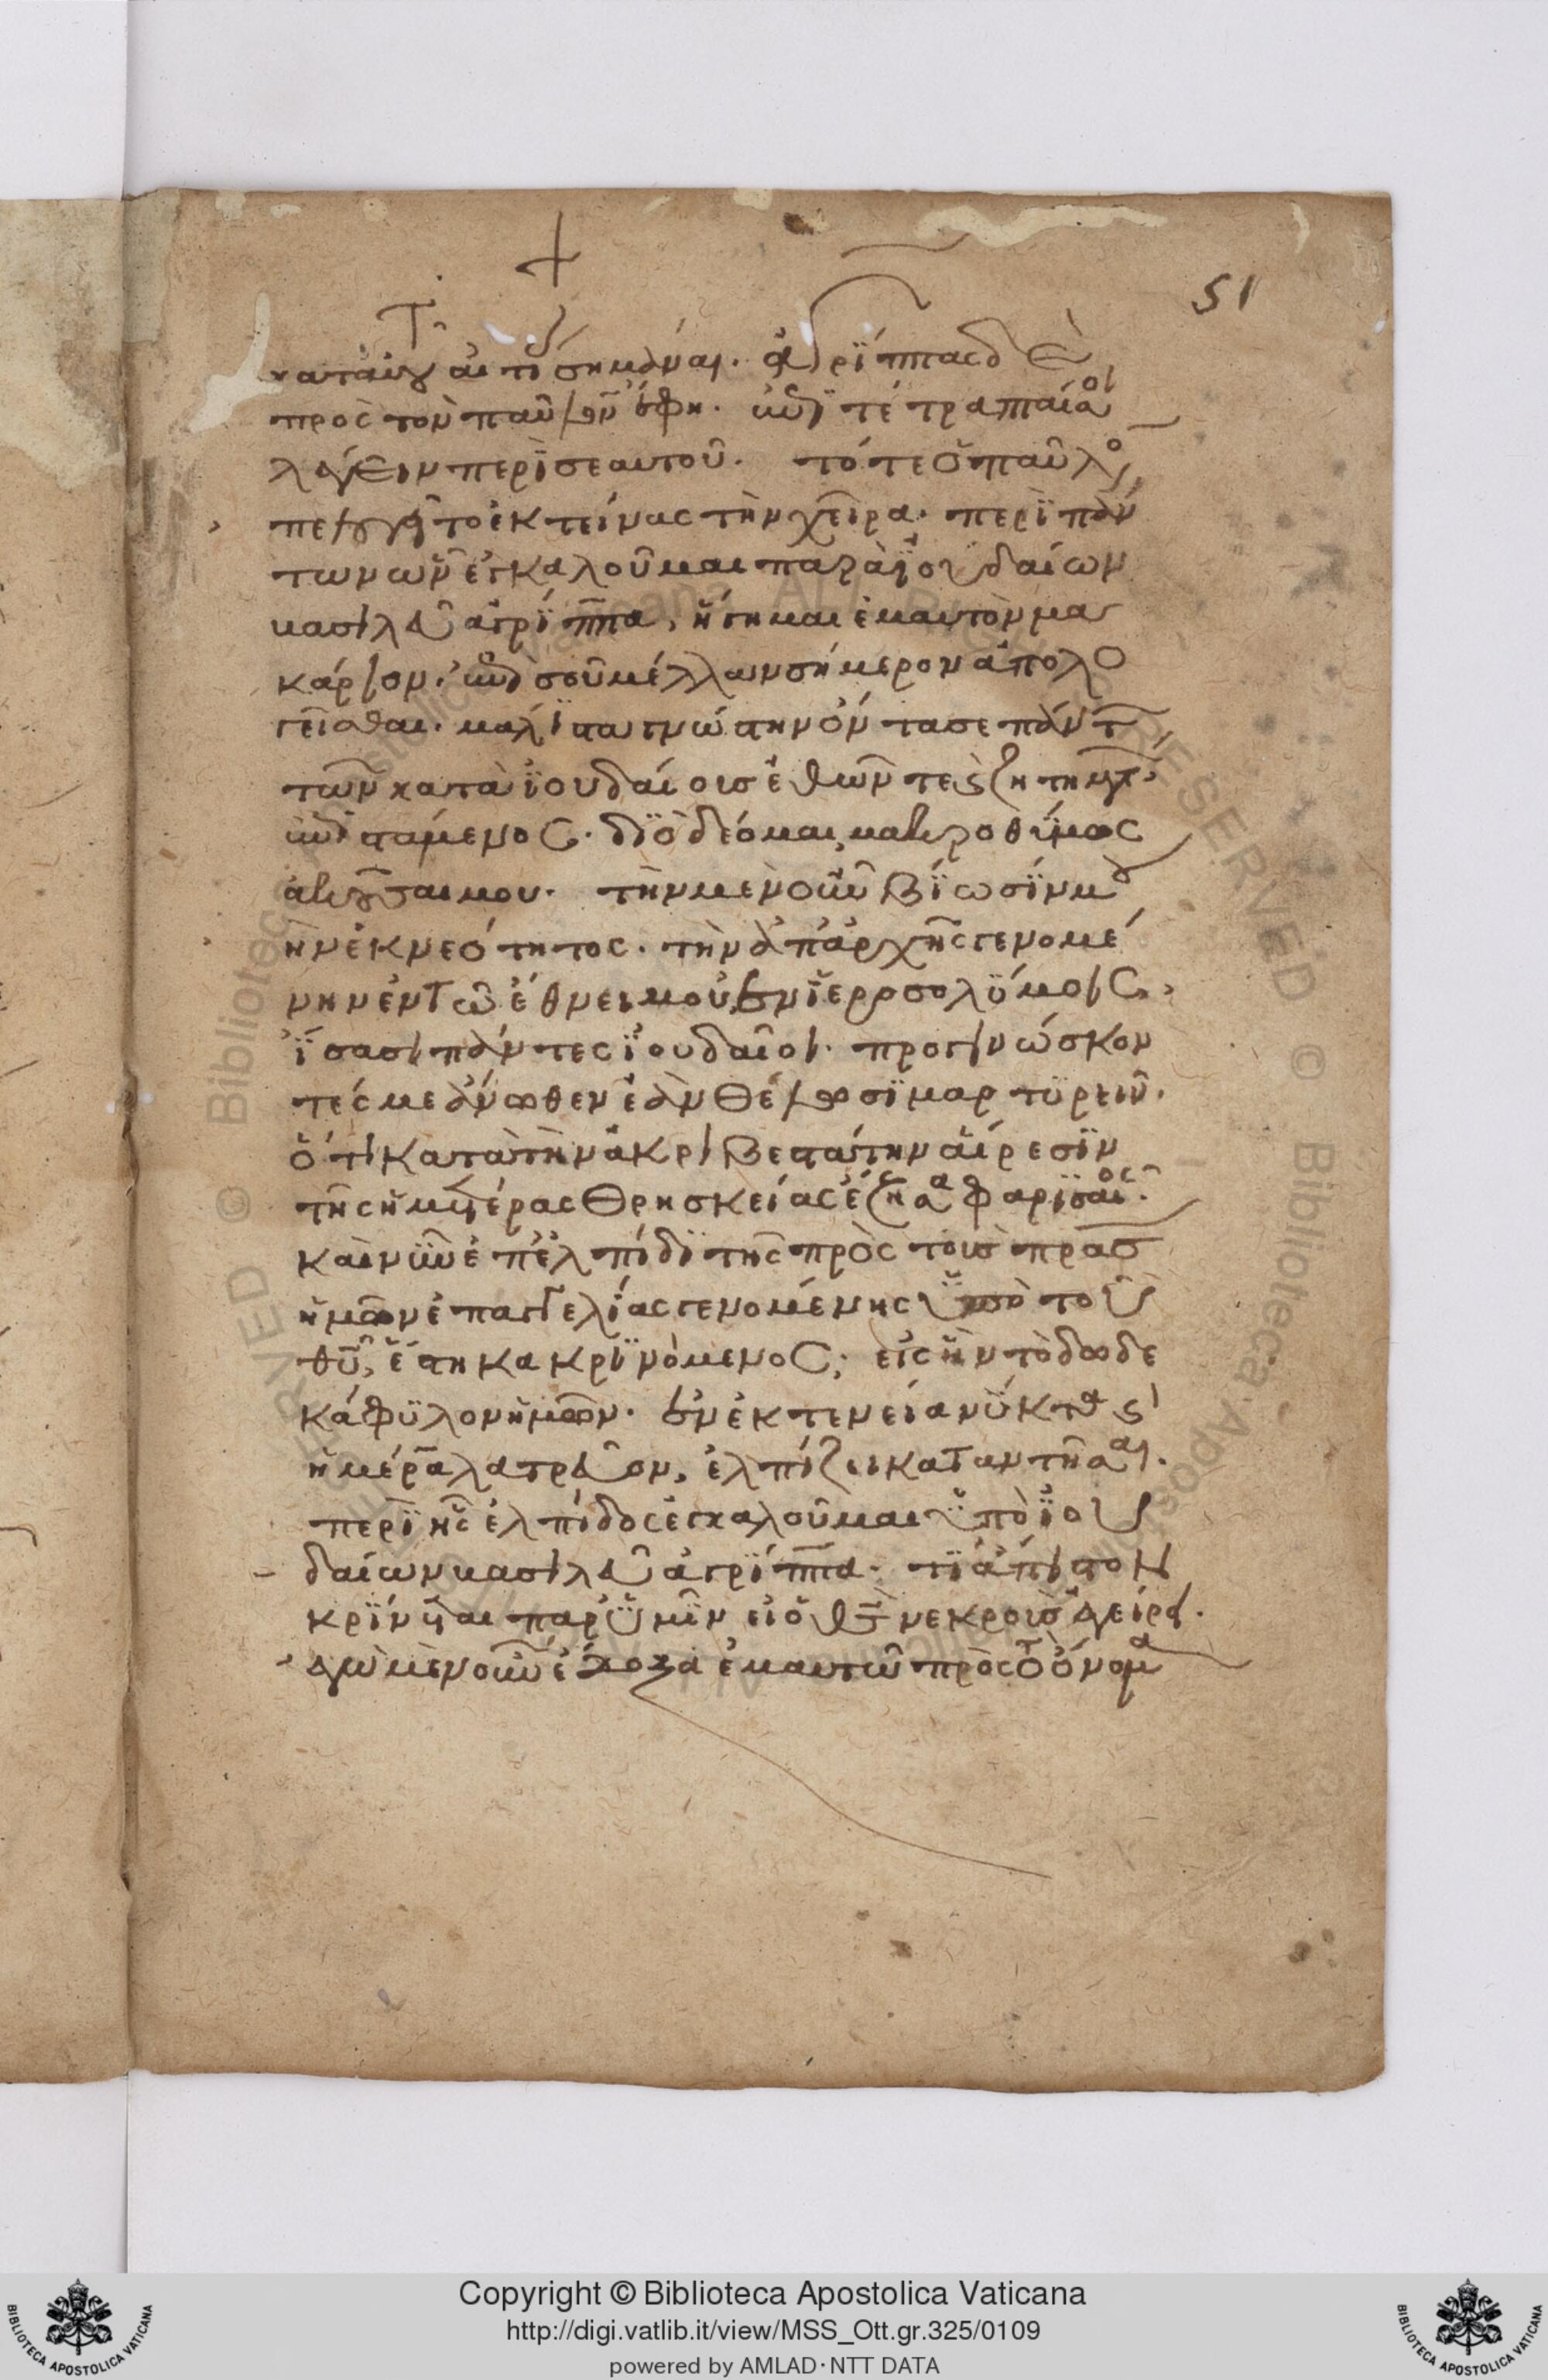 51
κατ αυτου αιτίας σημάναι. ἀγρΐππας δὲ
πρὸς τὸν παῦλον ἔφη. ἐπϊτέτραπταί σοι
λέγειν περὶ σεαυτοῦ. τότε ὁ παῦλος
ἀπελογεῖτο ἐκτείνας τὴν χεῖρα. περῒ πάν
των ὧν ἐγκαλοῦμαι παρὰ ϊουδαίων
βασιλεῦ ἀγρΐππα, ἥγημαι ἐμαυτὸν μα
κάριον. ἐπὶ σοῦ μέλλων σήμερον ἀπολο
γεῖσθαι. μάλϊστα γνώστην ὄντα σε πάντ
τῶν κατὰ ϊουδαίοις ἐθῶν τε ϗ ζητημάτ
ἐπιστάμενος. δϊὸ δέομαι, μακροθύμως
ἀκοῦσαι μου. τὴν μὲν οὖν βΐωσΐν μου
ἣν ἐκ νεότητος. τὴν ἀπ ἀρχῆς γενομέ
νην ἐν τῶ ἔθνει μου ἐν ϊεροσολϋμοις,
ἴσασι πάντες ϊουδαῖοι. προγινώσκον
τές με ἄνωθεν ἐὰν θέλωσϊ μαρτϋρεῖν.
ὅτι κατὰ τὴν ἀκριβεστάτην αἵρεσϊν
τῆς ἡμετέρας θρησκείας ἔζησα φαρϊσαῖος.
καὶ νῦν ἐπ ἐλπίδϊ τῆς πρὸς τοὺς πρασ
ἡμῶν ἐπαγγελίας γενομένης ὑπὸ τοῦ
θῦ, ἕστηκα κρϊνόμενος, εἰς ἣν τὸ δωδε
κάφϋλον ἡμῶν. ἐν ἐκτενεία νύκτα ϗ
ἡμέραν λατρεῦον, ἐλπίζει καταντῆσαι.
περῒ ἧς ἐλπίδος ἐγκαλοῦμαι ὑπὸ ϊου
δαίων βασιλεῦ ἀγρΐππα. τϊ ἄπιστον
κρΐνεται παρ ὑμῖν εἰ ὁ θς νεκροὺς ἐγείρει.
ἐγὼ μὲν οὖν ἔδοξα ἐμαυτῶ πρὸς τὸ ὄνομα
Copyright © Biblioteca Apostolica Vaticana
http://digi.vatlib.it/view/MSS_Ott.gr.325/0109
powered by AMLAD·NTT DATA